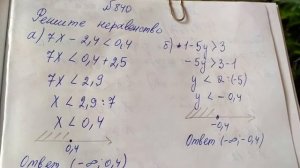 № 840
Решите неравенство
а) 7x - 2,4 < 0,4
7x < 0,4 + 2,5
7x < 2,9
x < 2,9 : 7
x < 0,4
0,4
Ответ (-∞, 0,4)
б) 1 - 5y > 3
-5y > 3 - 1
y < 2 : (-5)
y < - 0,4
-0,4
Ответ (-∞; -0,4)